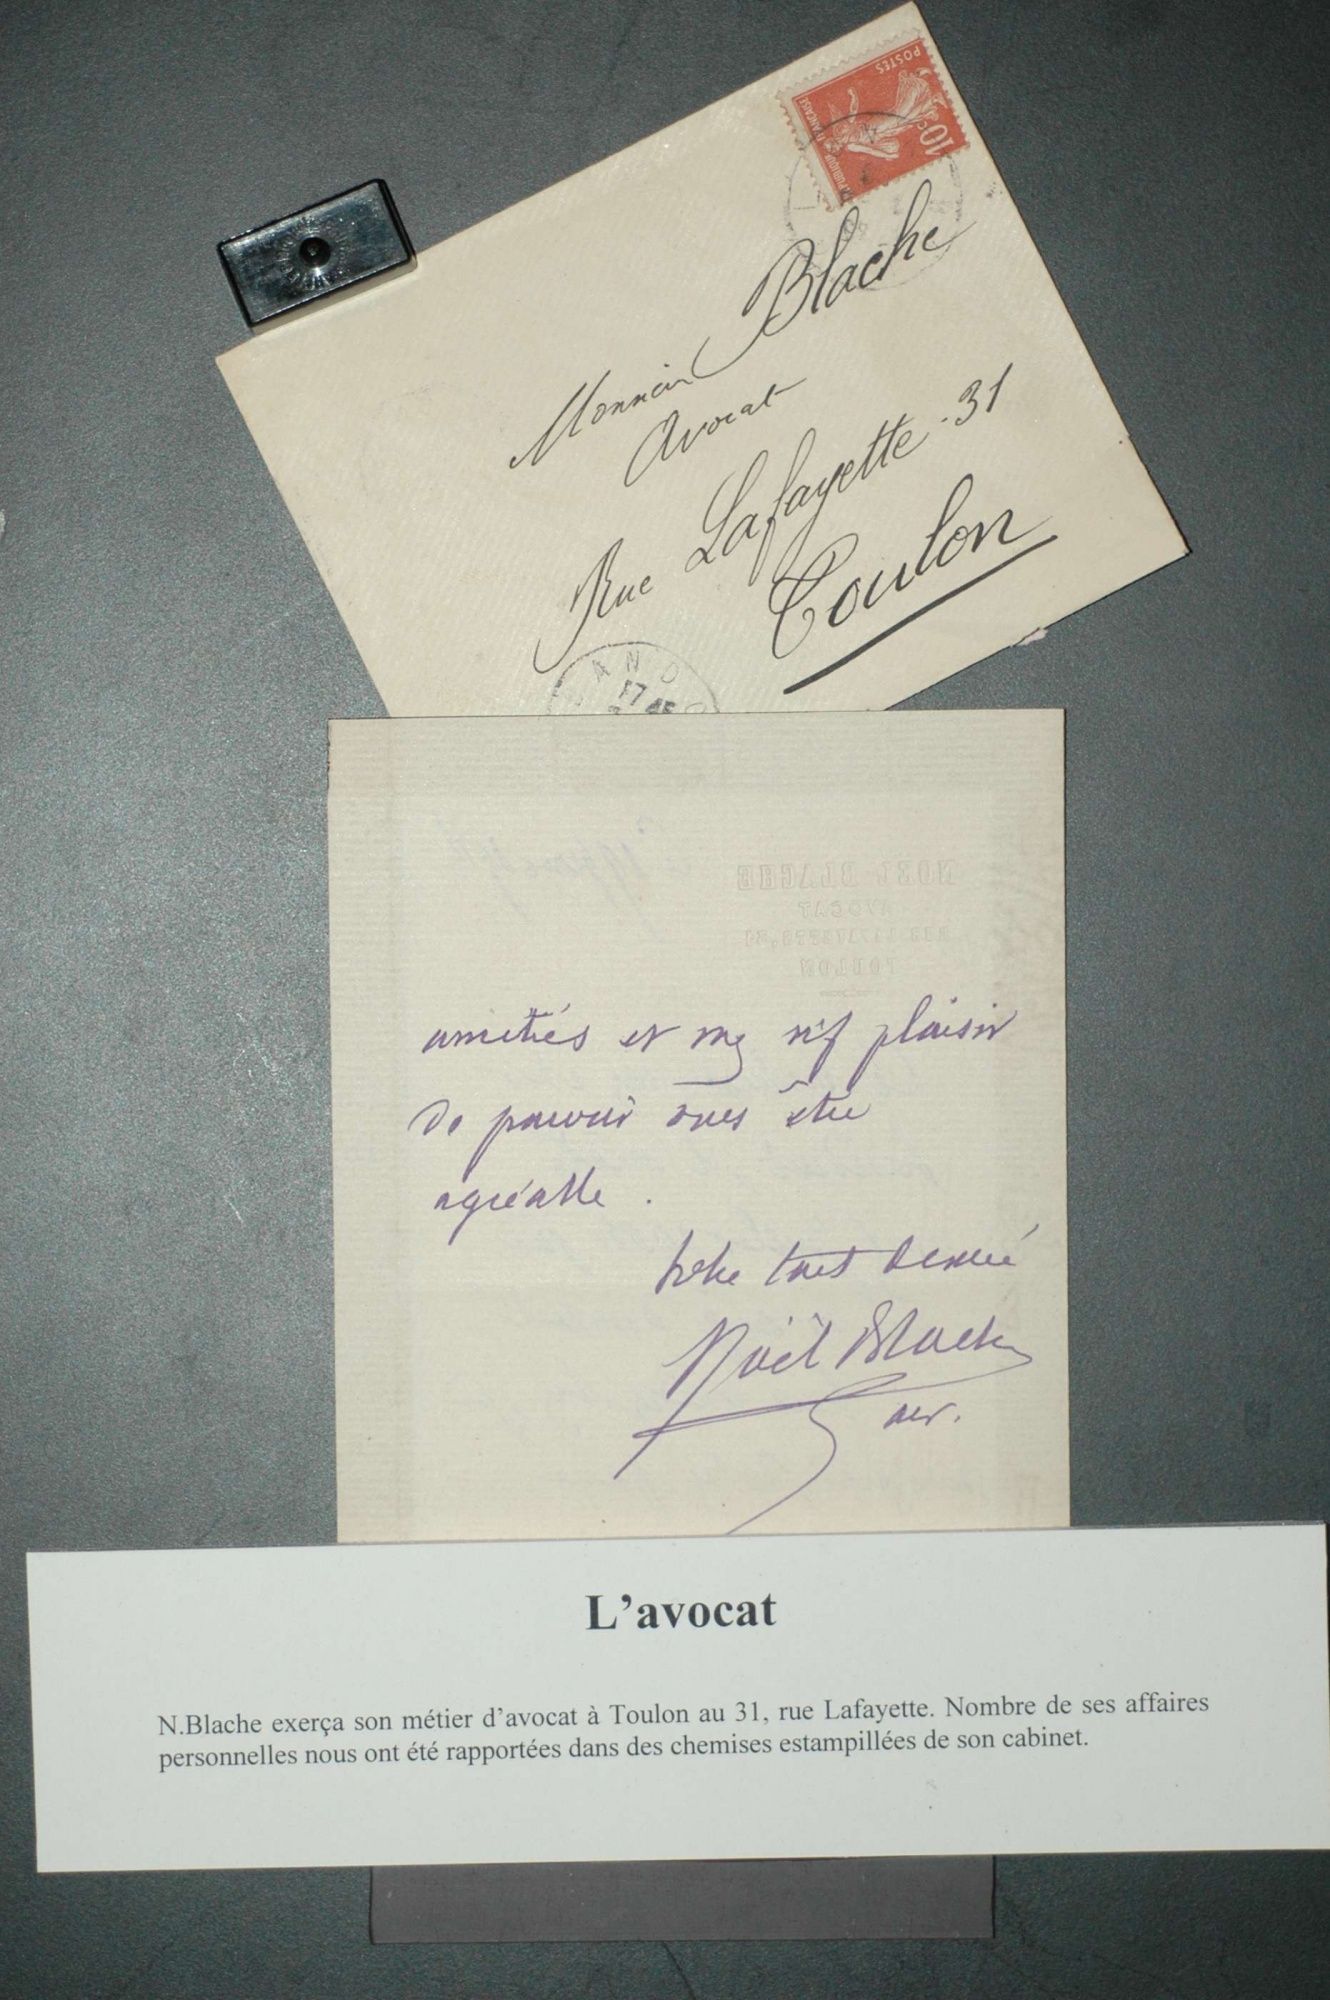 POSTES
10c
RÉPUBLIQUE FRANÇAISE
Monsieur Blache
Avocat
Rue Lafayette. 31
Toulon
AND
17 45
NOEL BLACHE
AVOCAT
RUE LAFAYETTE, 31
TOULON
amitiés et mon vif plaisir
de pouvoir vous être
agréable.
Votre tout dévoué
Noël Blache
av.
L'avocat
N.Blache exerça son métier d'avocat à Toulon au 31, rue Lafayette. Nombre de ses affaires
personnelles nous ont été rapportées dans des chemises estampillées de son cabinet.